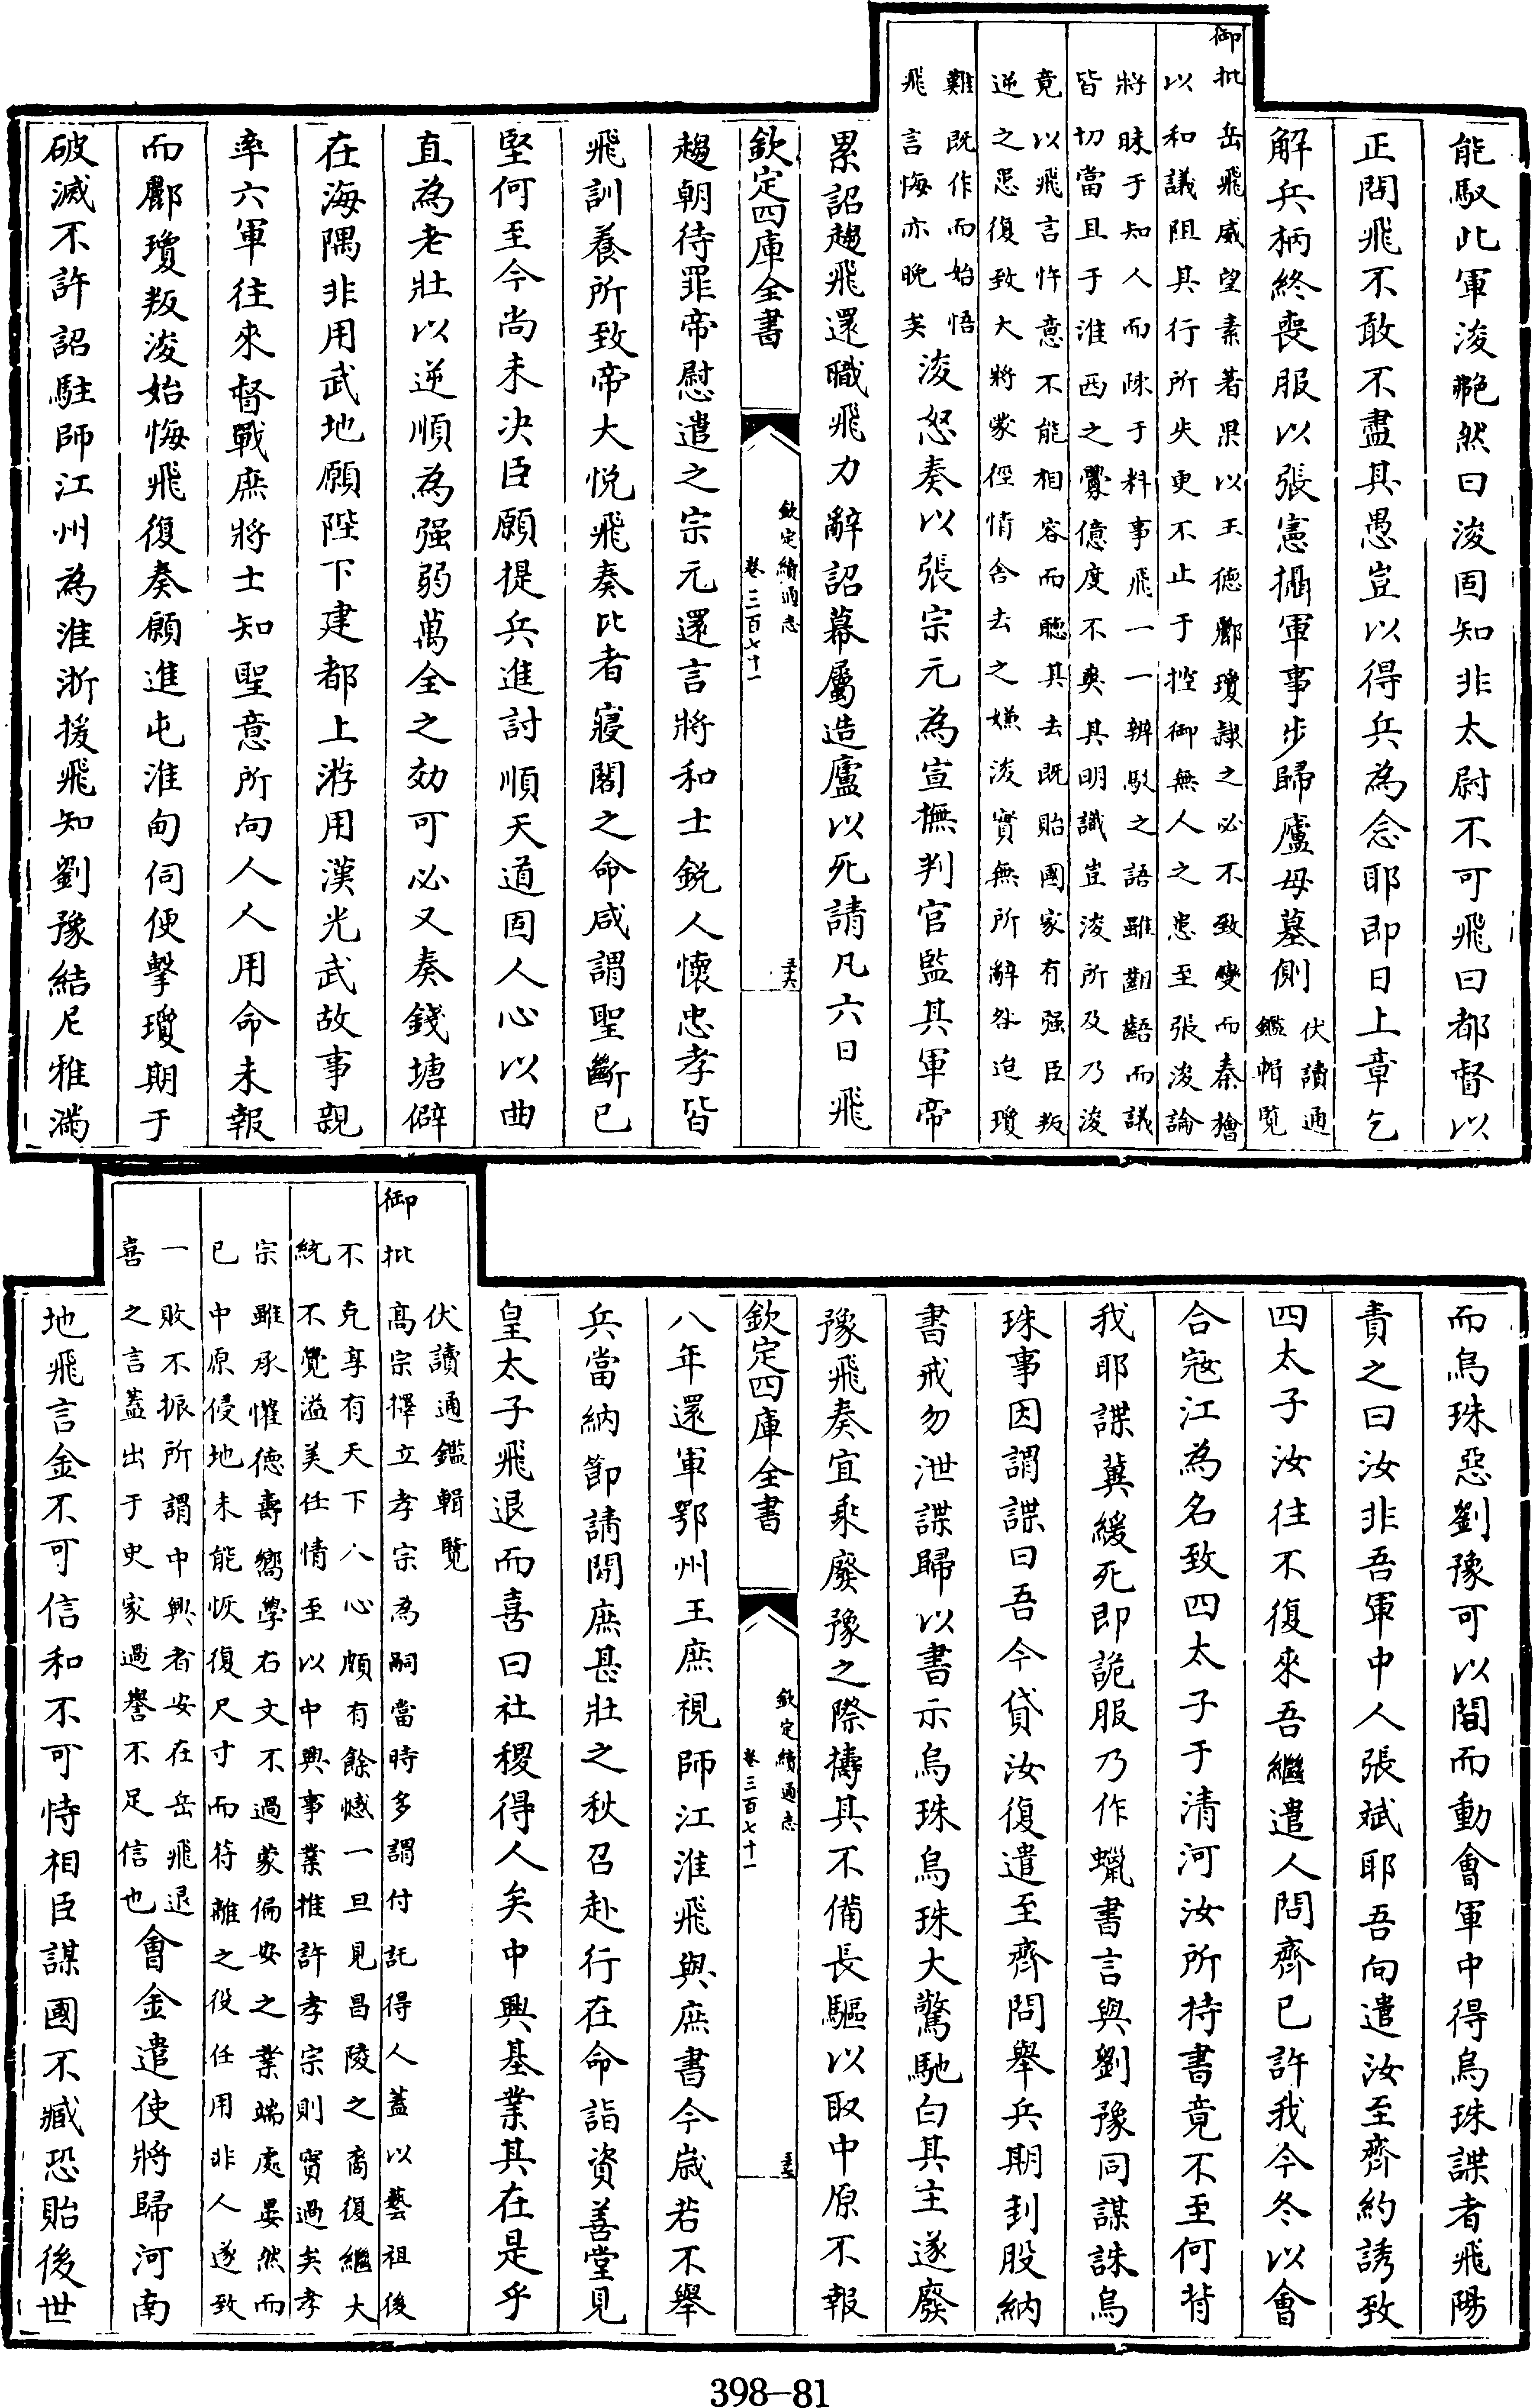 能馭此軍浚艴然曰浚固知非太尉不可飛曰都督以
正問飛不敢不盡其愚豈以得兵為念耶即日上章乞
解兵柄終喪服以張憲攝軍事步歸廬母墓側伏讀通
鑑輯覧
御批岳飛威望素著果以王德酈瓊隷之必不致變而秦檜
以和議阻其行所失更不止于控御無人之患至張浚論
將昧于知人而疎于料事飛一一辨駁之語雖齟齬而議
皆切當且于淮西之釁億度不爽其明識豈浚所及乃浚
竟以飛言忤意不能相容而聽其去既貽國家有强臣叛
逆之患復致大將蒙徑情舍去之嫌浚實無所辭咎迨瓊
難既作而始悟
飛言悔亦晚矣浚怒奏以張宗元為宣撫判官監其軍帝
累詔趨飛還職飛力辭詔幕屬造廬以死請凡六日飛
欽定四庫全書
欽定續通志
卷三百七十一
趨朝待罪帝慰遣之宗元還言將和士鋭人懷忠孝皆
飛訓養所致帝大悅飛奏比者寢閣之命咸謂聖斷已
堅何至今尚未決臣願提兵進討順天道固人心以曲
直為老壯以逆順為强弱萬全之効可必又奏錢塘僻
在海隅非用武地願陛下建都上游用漢光武故事親
率六軍往來督戰庶將士知聖意所向人人用命未報
而酈瓊叛浚始悔飛復奏願進屯淮甸伺便擊瓊期于
破滅不許詔駐師江州為淮浙援飛知劉豫結尼雅滿
而烏珠惡劉豫可以間而動會軍中得烏珠諜者飛陽
責之曰汝非吾軍中人張斌耶吾向遣汝至齊約誘致
四太子汝往不復來吾繼遣人問齊已許我今冬以會
合寇江為名致四太子于清河汝所持書竟不至何背
我耶諜冀緩死即詭服乃作蠟書言與劉豫同謀誅烏
珠事因謂諜曰吾今貸汝復遣至齊問舉兵期刲股納
書戒勿泄諜歸以書示烏珠烏珠大驚馳白其主遂廢
豫飛奏宜乘廢豫之際擣其不備長驅以取中原不報
欽定四庫全書
欽定續通志
卷三百七十一
八年還軍鄂州王庶視師江淮飛與庶書今歲若不舉
兵當納節請閒庶甚壯之秋召赴行在命詣資善堂見
皇太子飛退而喜曰社稷得人矣中興基業其在是乎
伏讀通鑑輯覽
御批高宗擇立孝宗為嗣當時多謂付託得人蓋以藝祖後
不克享有天下人心頗有餘憾一旦見昌陵之裔復繼大
統不覺溢美任情至以中興事業推許孝宗則實過矣孝
宗雖承懽德壽嚮學右文不過蒙偏安之業端處晏然而
已中原侵地未能恢復尺寸而符離之役任用非人遂致
一敗不振所謂中興者安在岳飛退
喜之言蓋出于史家過譽不足信也會金遣使將歸河南
地飛言金不可信和不可恃相臣謀國不臧恐貽後世
398-81